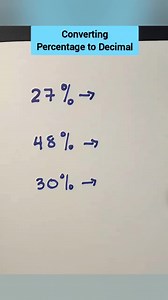 Converting
Percentage to Decimal
27% →
48% →
30% →